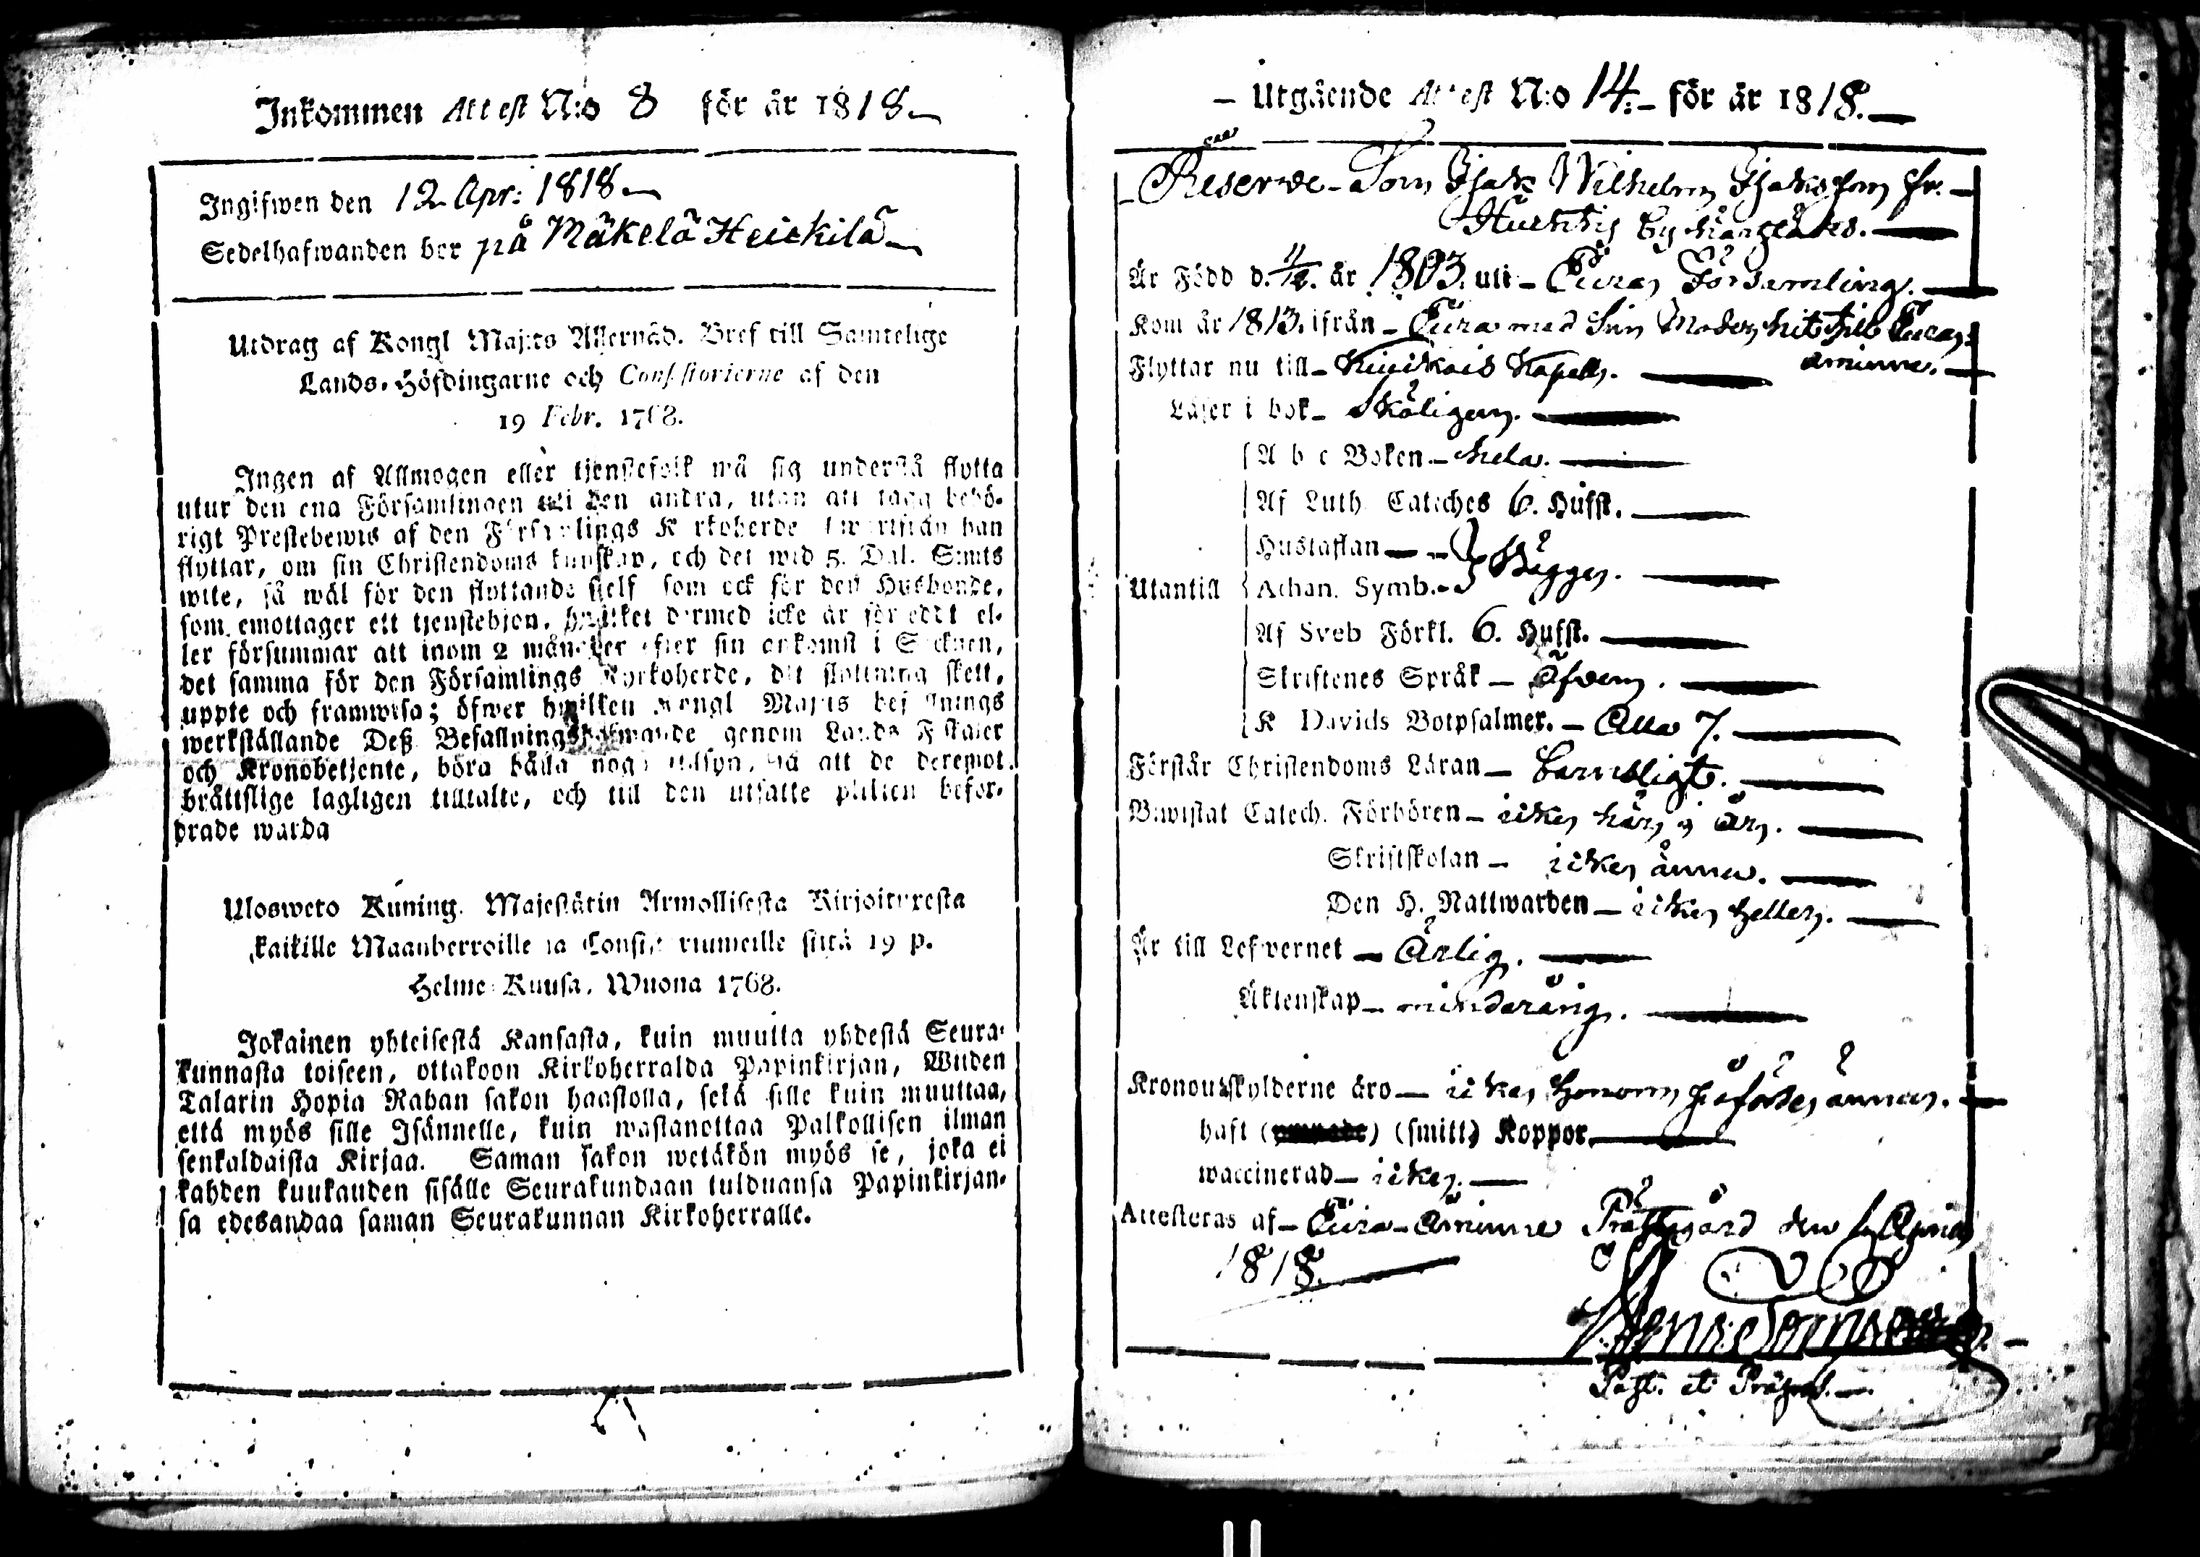 Inkommen Attest N:o 8 för år 1818
Ingifwen den 12 Apr: 1818
Sedelhafwanden bor på Mäkelä Heickilä
Utdrag af Kongl Majits Allernåd. Bref till Samtelige
Lands-Höfdingarne och Consistorierne af den
19 Febr. 1768.
Ingen af Allmogen eller tjenstefolk må sig understå flytta
utur den ena Församlingen till den andra, utan att taga behö-
rigt Prestebewis af den Församlings Kyrkoherde hwarifrån han
flyttar, om sin Christendoms kunskap, och det wid 5. Dal. S:mts
wite, så wäl för den flyttande sielf som ock för den Husbonde,
som emottager ett tjenstehjon, hwilket dermed icke är försedt el-
ler försummar att inom 2 månader efter sin ankomst i Socknen,
det samma för den Församlings Kyrkoherde, dit flyttning skett,
uppte och framwisa; öfwer hwilken Kongl Majits befallnings
werkställande Deß Befallningshafwande genom Lands Fiskaler
och Kronobetjente, böra hålla noga tillsyn, så att de deremot
bråttslige lagligen tilltalte, och till den utsatte plikten befor-
drade warda
Ulosweto Kuning. Majestätin Armollisesta Kirjoituxesta
kaikille Maanherroille ja Consistoriumeille siitä 19 p.
Helme Kuusa, Wuona 1768.
Jokainen yhteisestä Kansasta, kuin muutta yhdestä Seura-
kunnasta toiseen, ottakoon Kirkoherralda Papinkirjan, Wiiden
Talarin Hopia Rahan sakon haastolla, sekä sille kuin muuttaa,
että myös sille Isännelle, kuin wastanottaa Palkollisen ilman
senkaldaista Kirjaa. Saman sakon wetäkön myös se, joka ei
kahden kuukauden sisälle Seurakundaan tulduansa Papinkirjan-
sa edesandaa saman Seurakunnan Kirkoherralle.
Utgående Attest N:o 14. för år 1818.
Reserve Son Isak Wilhelm Isaksson fr.
by härstädes.
Är Född d. 11/2. år 1803. uti Eura Församling.
Kom år 1813. ifrån Eura med sin Moder hit till Eura
åminne.
Flyttar nu till Kiukais Kapell.
Läser i bok Skäligen.
A b c Boken hela.
Af Luth. Catéches 6. Hufst.
Hustaflan
Utantill Athan. Symb. Bägge.
Af Sveb Förkl. 6. Hufst.
Skriftenes Språk Äfven.
K Davids Botpsalmer. Alla 7.
Förstår Christendoms Läran barnsligt.
Bewistat Catech. Förhören icke här i År.
Skriftskolan icke ännu.
Den H. Nattwarden icke heller.
Är till Lefwernet Ärlig.
Äktenskap minderårig.
Kronoutskylderne äro icke honom påförde ännu.
haft (smitt) Koppor
waccinerad icke.
Attesteras af Eura Åminne Prästgård den April
1818.
Past. et Præpos.